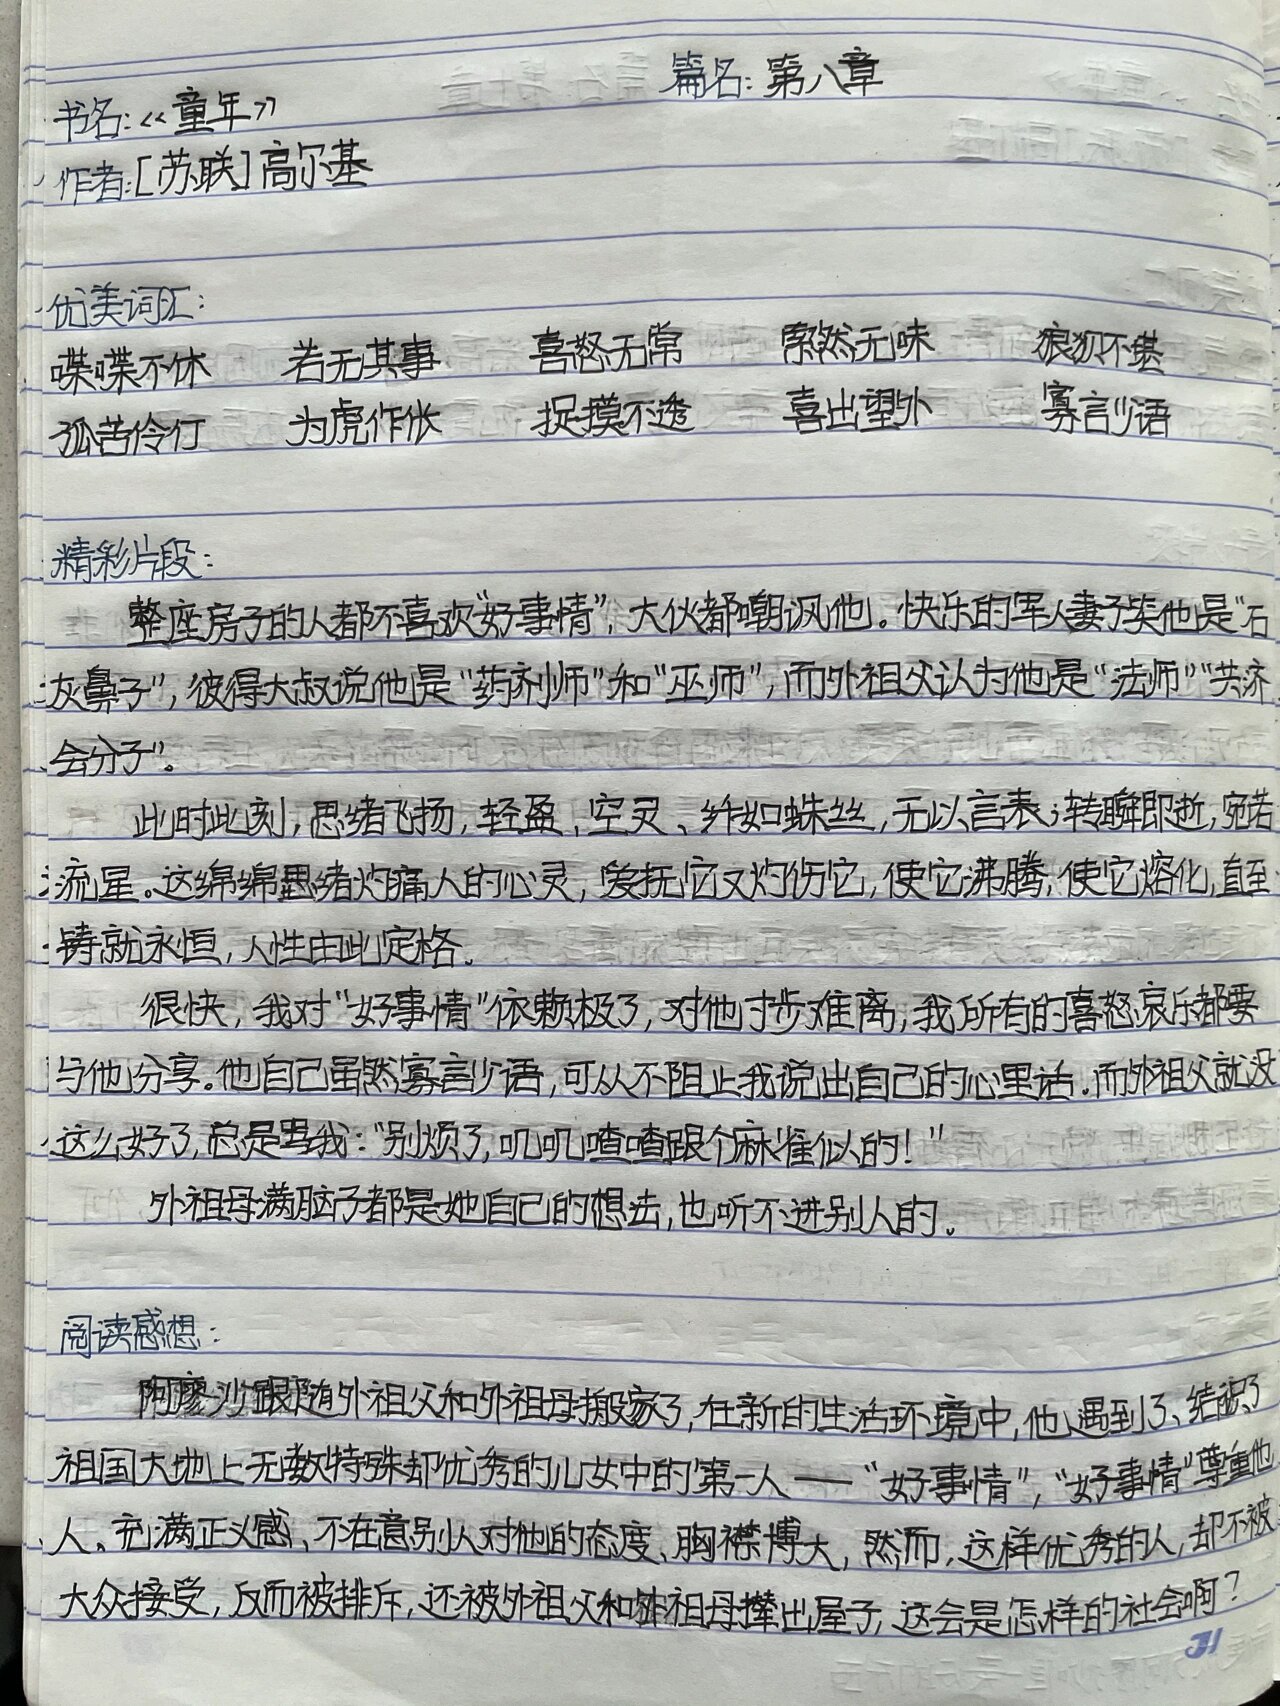 篇名：第八章
书名：《童年》
作者：[苏联]高尔基
优美词汇：
喋喋不休 若无其事 喜怒无常 索然无味 狼狈不堪
孤苦伶仃 为虎作伥 捉摸不透 喜出望外 寡言少语
精彩片段：
整座房子的人都不喜欢“好事情”，大伙都嘲讽他。快乐的军人妻子笑他是“石
灰鼻子”，彼得大叔说他是“药剂师”和“巫师”，而外祖父认为他是“法师”“共济
会分子”。
此时此刻，思绪飞扬，轻盈，空灵、纤如蛛丝，无以言表；转瞬即逝，宛若
流星。这绵绵思绪灼痛人的心灵，爱抚它又灼伤它，使它沸腾，使它熔化，直至
铸就永恒，人性由此定格。
很快，我对“好事情”依赖极了，对他寸步难离，我所有的喜怒哀乐都要
与他分享。他自己虽然寡言少语，可从不阻止我说出自己的心里话。而外祖父就没
这么好了，总是骂我：“别烦了，叽叽喳喳跟个麻雀似的！”
外祖母满脑子都是她自己的想法，也听不进别人的。
阅读感想：
阿廖沙跟随外祖父和外祖母搬家了，在新的生活环境中，他遇到了、结识了
祖国大地上无数特殊却优秀的儿女中的第一人——“好事情”，“好事情”尊重他
人、充满正义感、不在意别人对他的态度、胸襟博大，然而，这样优秀的人，却不被
大众接受，反而被排斥，还被外祖父和外祖母撵出屋子，这会是怎样的社会啊？